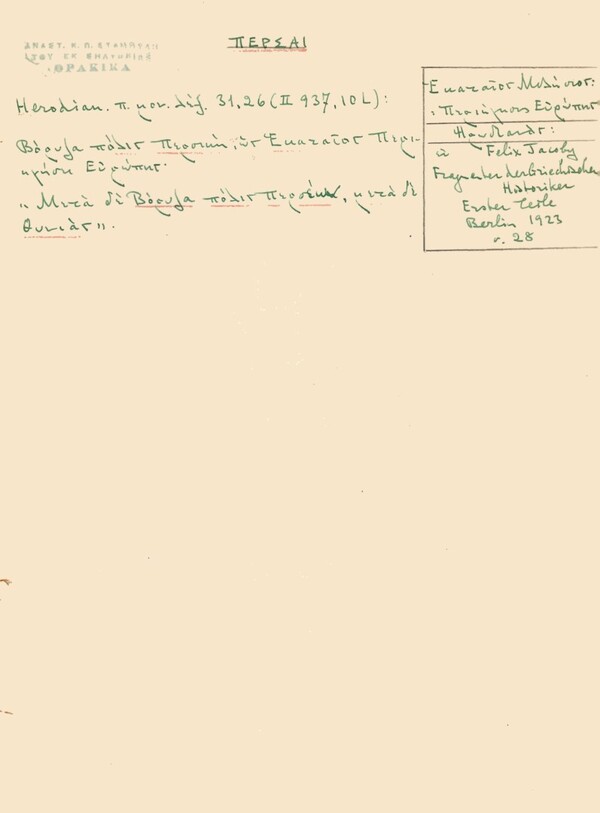 ΠΕΡΣΑΙ
ΘΡΑΚΙΚΑ
Herodian. π. μον. λέξ. 31, 26 (II 937, 10 L):
Βόρυζα πόλις Περσική, ὡς Ἑκαταῖος Περι-
ηγήσει Εὐρώπης.
"Μετὰ δὲ Βόρυζα πόλις Περσέων, μετὰ δὲ
Θυνιάς".
Ἑκαταῖος Μιλήσιος:
Περιήγησις Εὐρώπης
Felix Jacoby
Fragmente der Griechischen
Historiker
Erster Teile
Berlin 1923
σ. 28